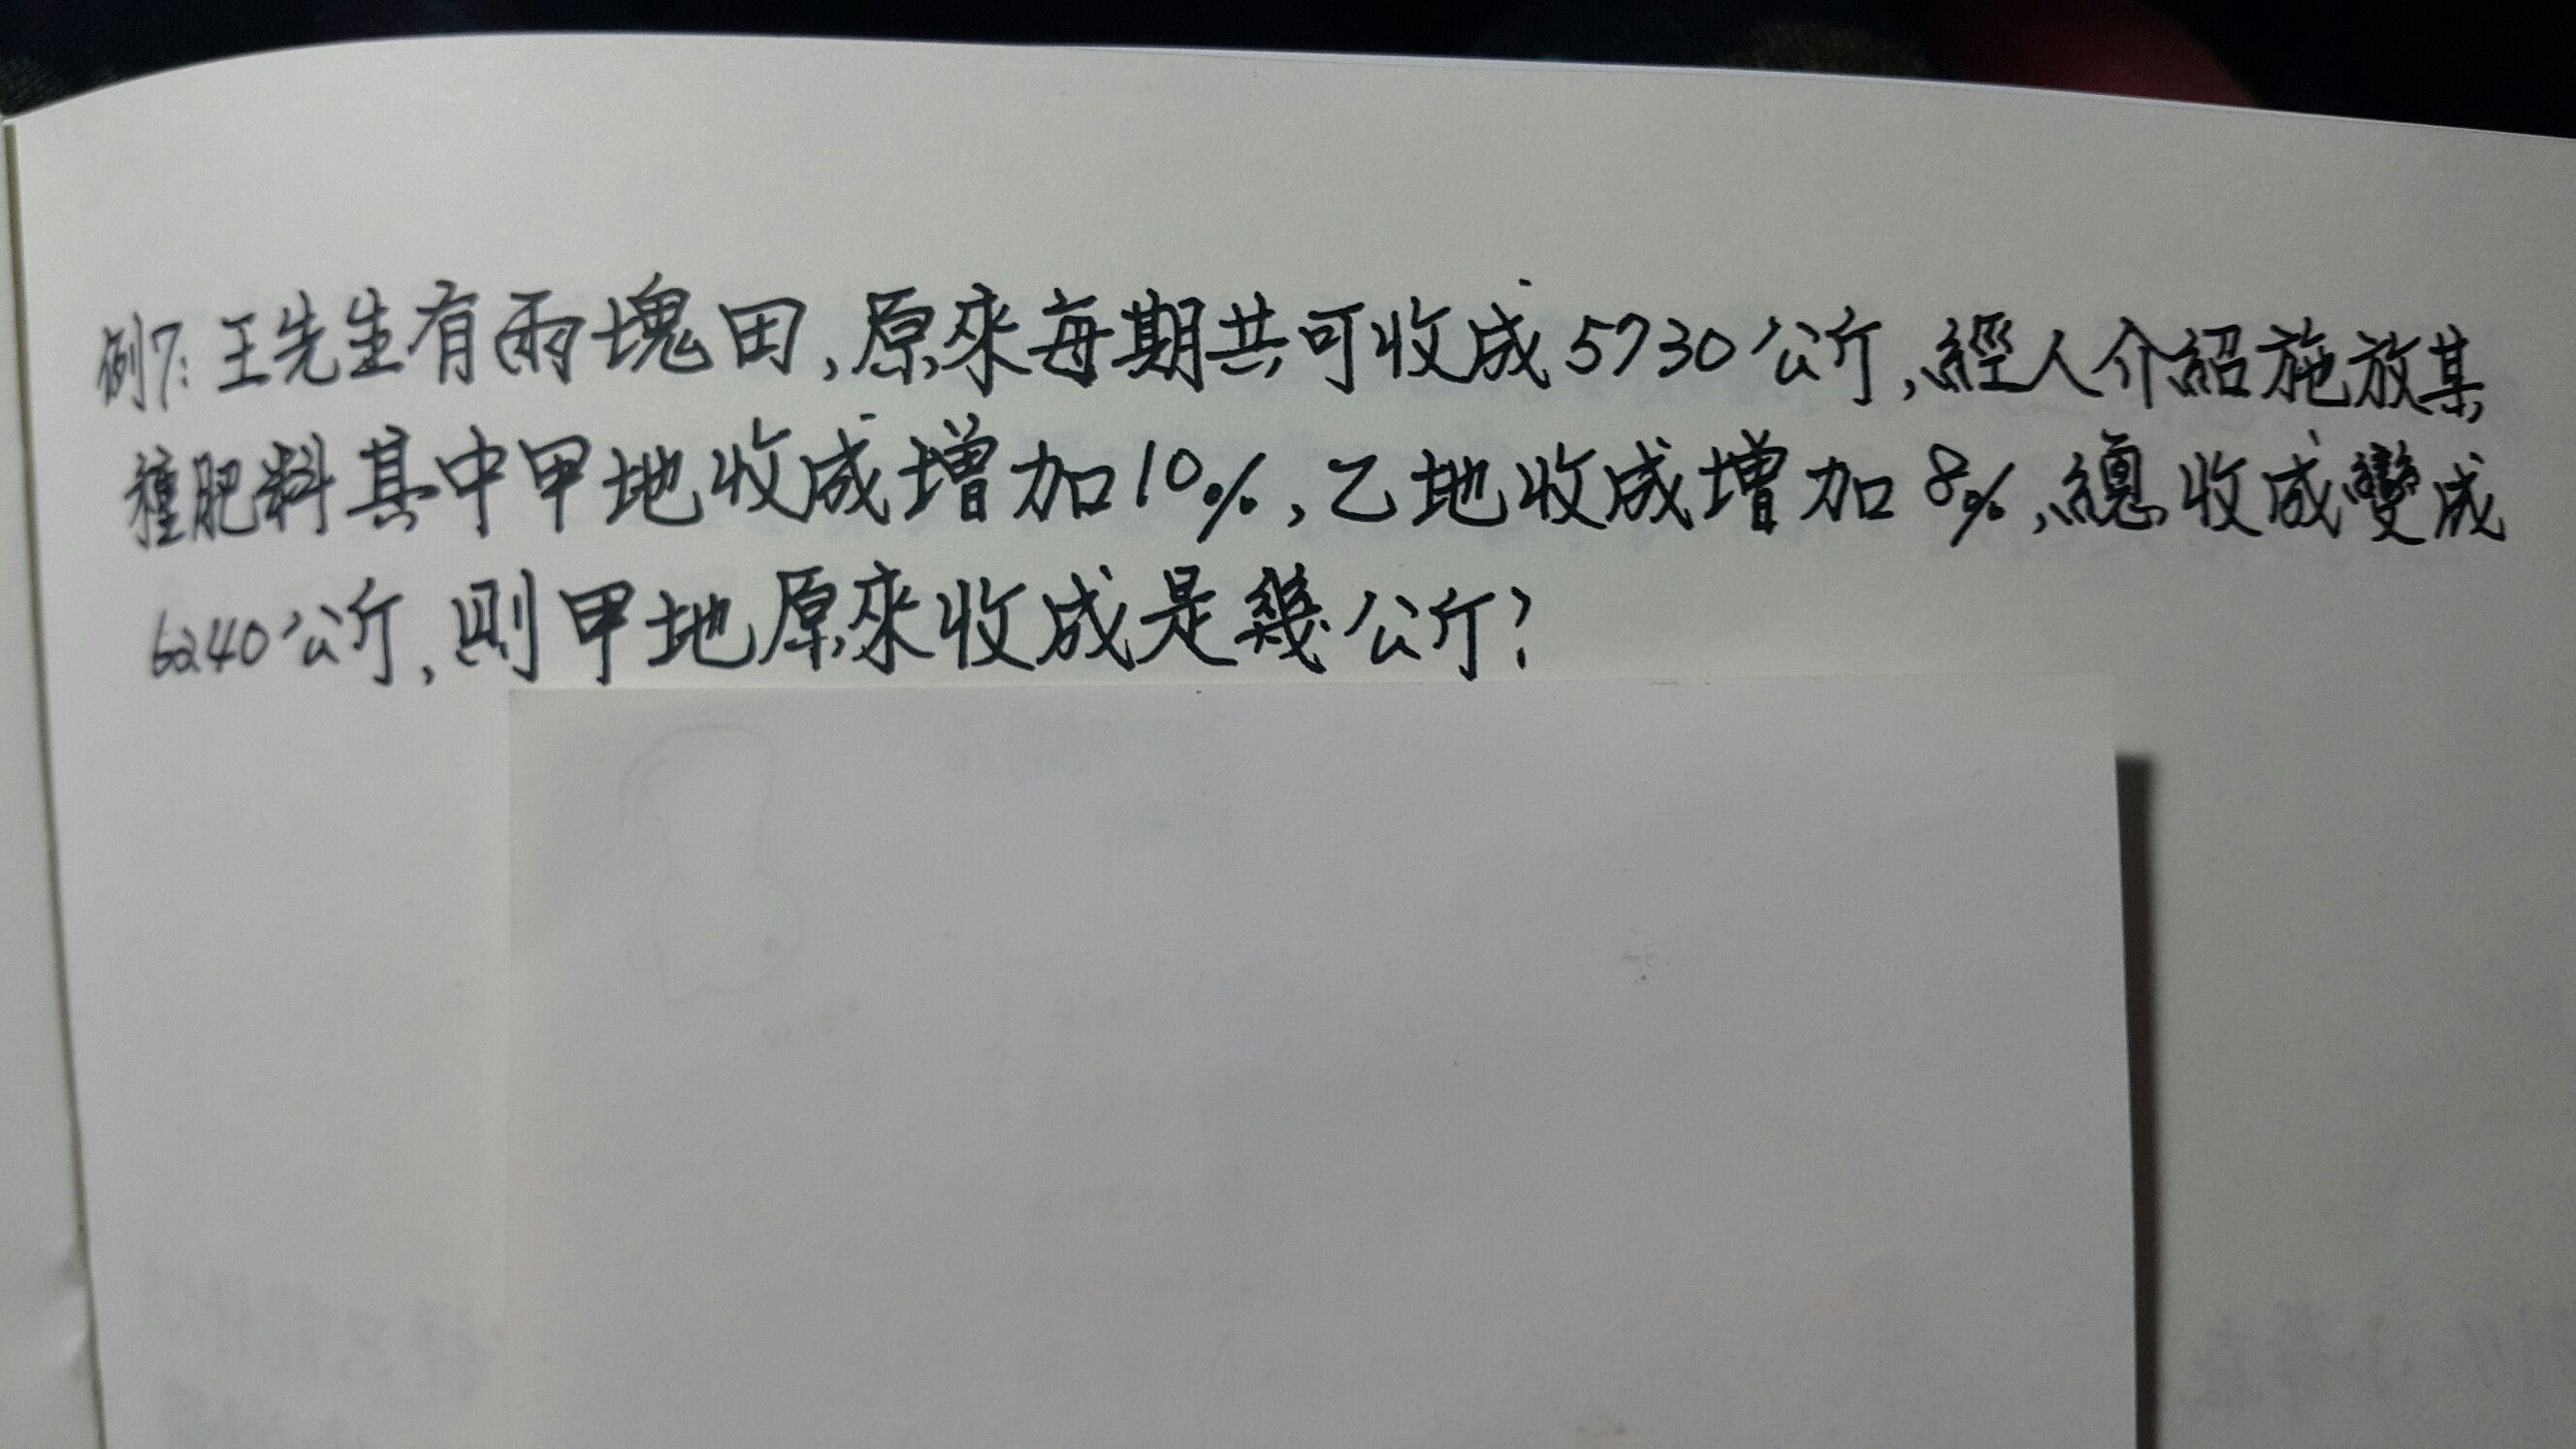 例7:王先生有兩塊田,原來每期共可收成5730公斤,經人介紹施放某
種肥料其中甲地收成增加10%,乙地收成增加8%,總收成變成
6240公斤,則甲地原來收成是幾公斤?